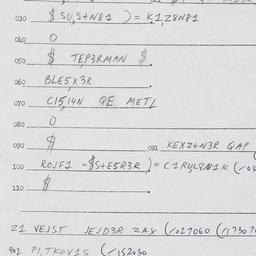 030 $ SU,S+N81 )= K1,Z8N81
040 0
050 $ TEP3RMAN $
060 BLE5X3R
070 C15,14N QE METL
080 0
090 $ 091 KEXZ+N3R QAP
100 ROJF1 -$S+E5R3R )= C1RYL8N1K (/03
110 $
21 VEJST JEJD3R ZAX (/027060 (/17307
902 PI,TKOV1S (/152030